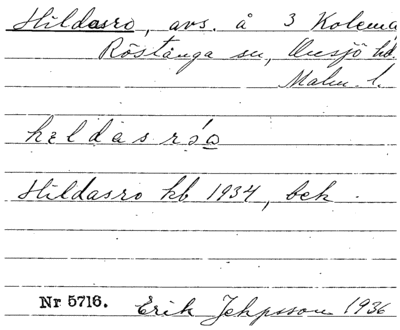 Hildasro, avs. å 3 Kolema
Röstånga sn, Onsjö hd
Malm. l.
hεldasróa
Hildasro kb 1934, bek.
Nr 5716. Erik Jeppsson 1936